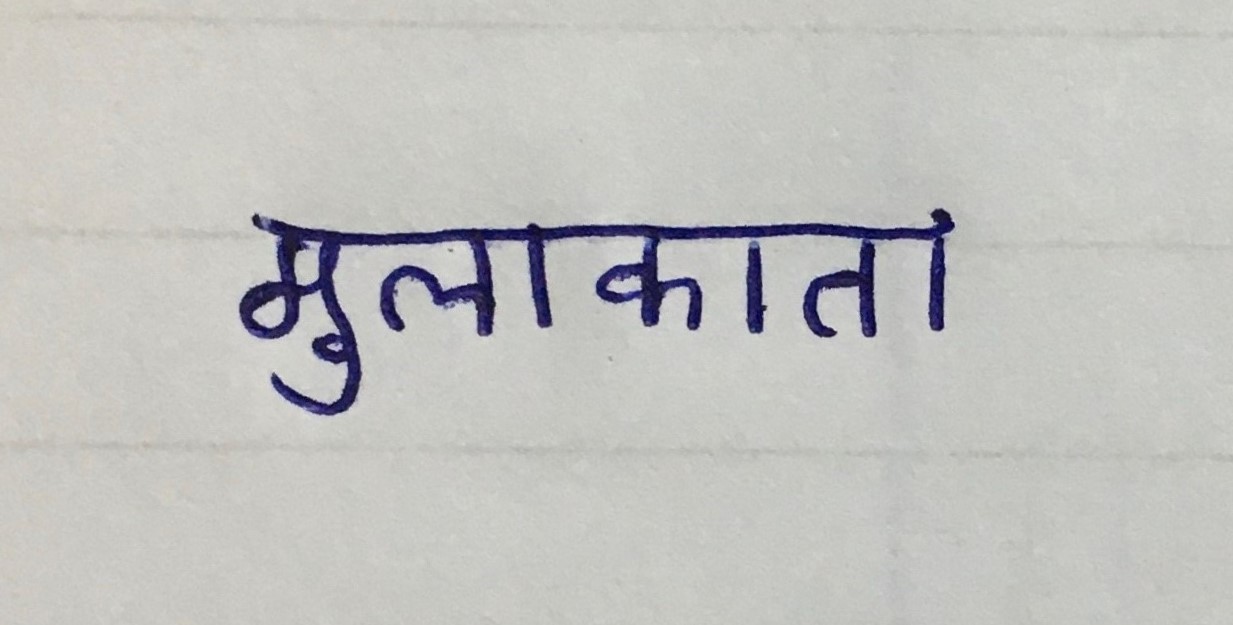 मुलाकातां